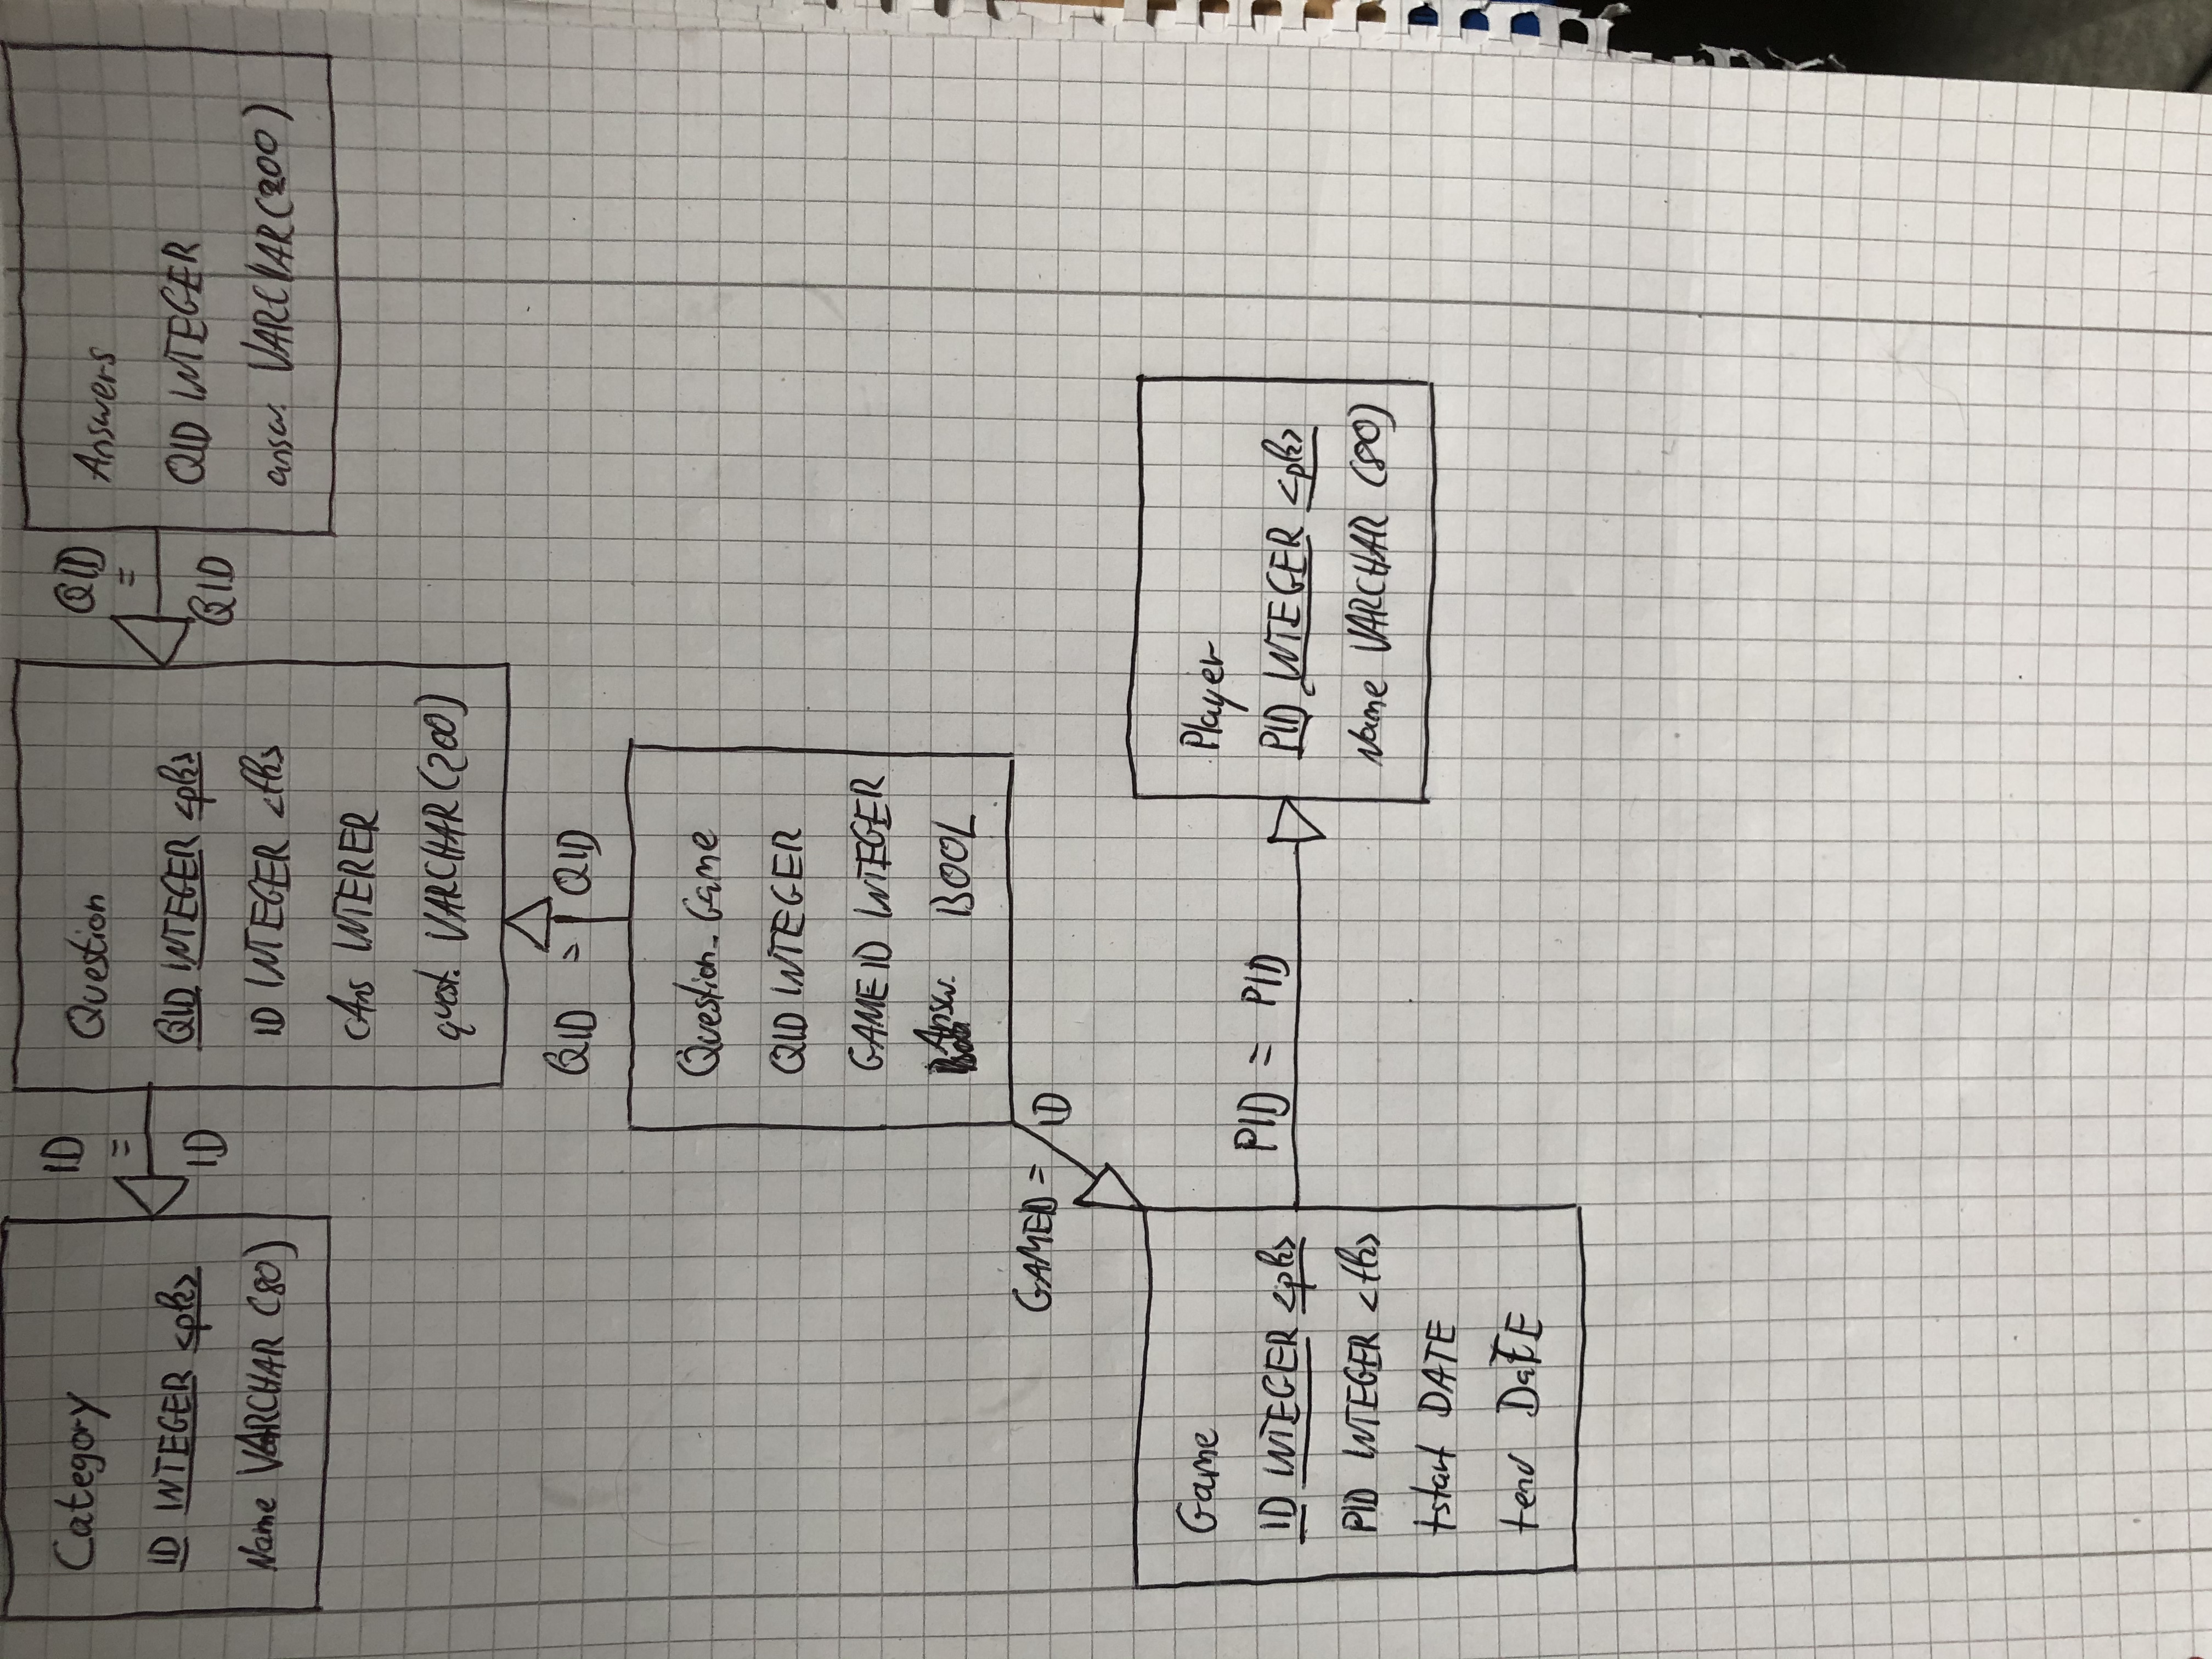 Category
ID INTEGER <pk>
Name VARCHAR (80)
ID
=
ID
Question
QID INTEGER <pk>
ID INTEGER <fk>
CAns INTERER
quest. VARCHAR (200)
QID
=
QID
Answers
QID INTEGER
answ. VARCHAR (200)
QID = QID
Question_Game
QID INTEGER
GAMEID INTEGER
Answ. BOOL
GAMEID = ID
Game
ID INTEGER <pk>
PID INTEGER <fk>
tstart DATE
tend DATE
PID = PID
Player
PID INTEGER <pk>
Name VARCHAR (80)